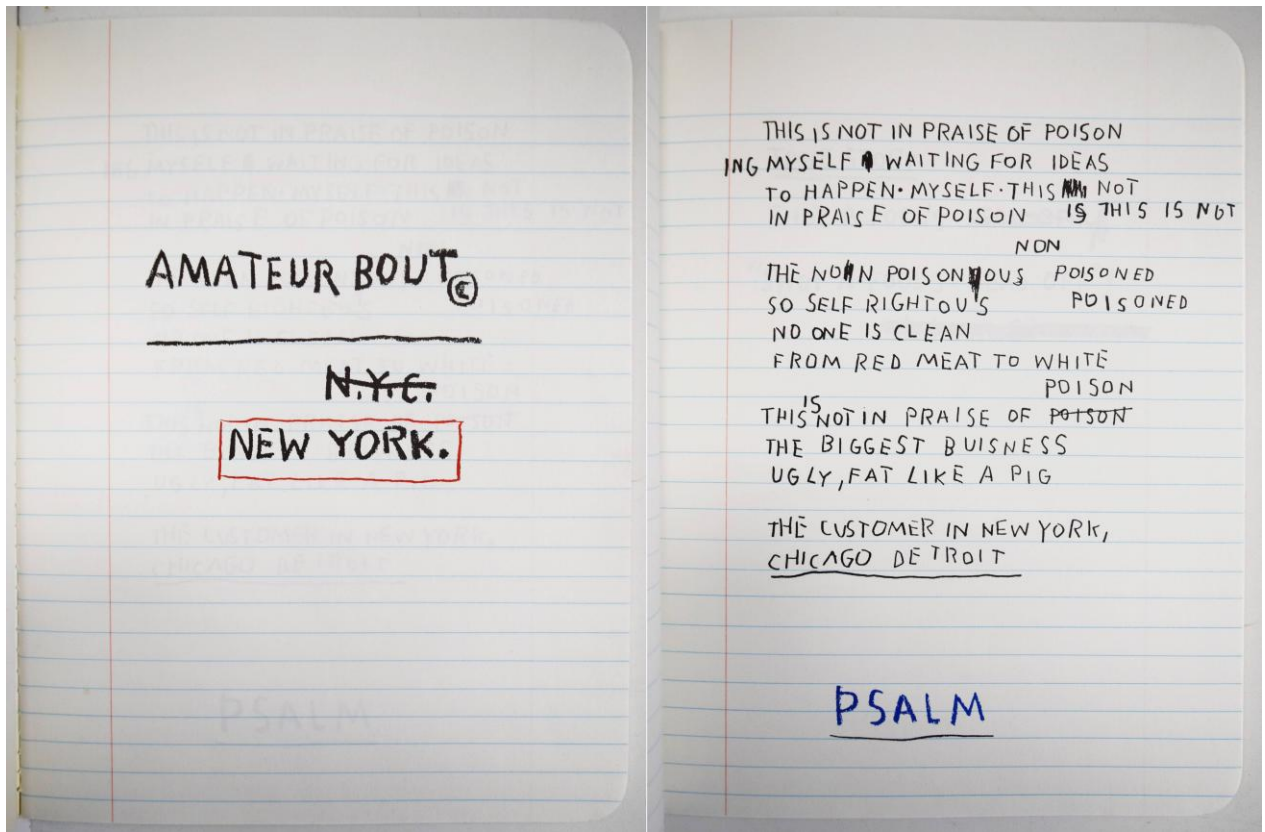 AMATEUR BOUT ©
N.Y.C.
NEW YORK.
THIS IS NOT IN PRAISE OF POISON
ING MYSELF WAITING FOR IDEAS
TO HAPPEN·MYSELF·THIS NOT
IN PRAISE OF POISON IS THIS IS NOT
NON
THE NON POISONOUS POISONED
SO SELF RIGHTOU'S POISONED
NO ONE IS CLEAN
FROM RED MEAT TO WHITE
POISON
IS
THIS NOT IN PRAISE OF POISON
THE BIGGEST BUISNESS
UGLY, FAT LIKE A PIG
THE CUSTOMER IN NEW YORK,
CHICAGO DETROIT
PSALM